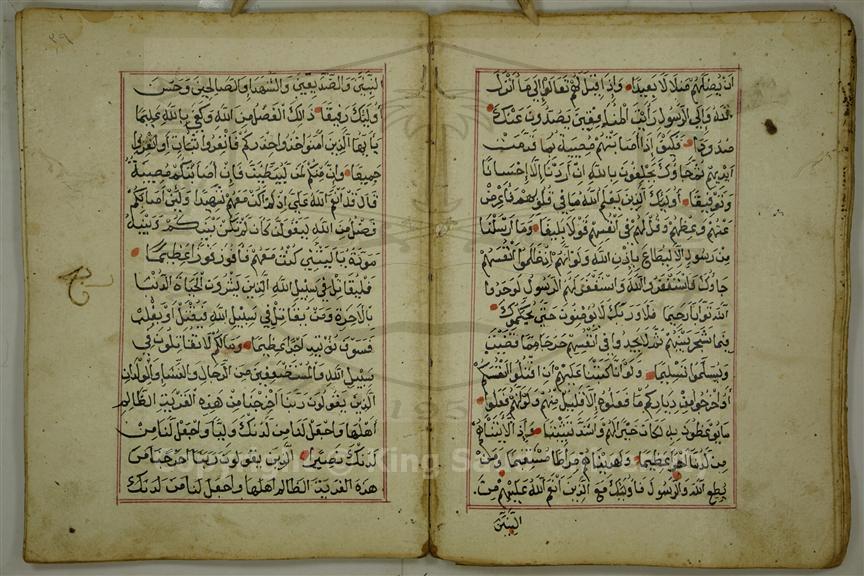 ان يضلهم ضلالا بعيدا واذا قيل لهم تعالوا الى ما انزل
الله والى الرسول رأيت المنافقين يصدون عنك
صدودا فكيف اذا اصابتهم مصيبة بما قدمت
ايديهم ثم جاؤك يحلفون بالله ان اردنا الا احسانا
وتوفيقا اولئك الذين يعلم الله ما في قلوبهم فاعرض
عنهم وعظهم وقل لهم في انفسهم قولا بليغا وما ارسلنا
من رسول الا ليطاع باذن الله ولو انهم اذ ظلموا انفسهم
جاؤك فاستغفروا الله واستغفر لهم الرسول لوجدوا
الله توابا رحيما فلا وربك لا يؤمنون حتى يحكموك
فيما شجر بينهم ثم لا يجدوا في انفسهم حرجا مما قضيت
ويسلموا تسليما ولو انا كتبنا عليهم ان اقتلوا انفسكم
او اخرجوا من دياركم ما فعلوه الا قليل منهم ولو انهم فعلوا
ما يوعظون به لكان خيرا لهم واشد تثبيتا واذا لآتيناهم
من لدنا اجرا عظيما ولهديناهم صراطا مستقيما ومن
يطع الله والرسول فاولئك مع الذين انعم الله عليهم من
النبيين
٣٩
النبيين والصديقين والشهداء والصالحين وحسن
اولئك رفيقا ذالك الفضل من الله وكفى بالله عليما
يا ايها الذين امنوا خذوا حذركم فانفروا ثبات او انفروا
جميعا وان منكم لمن ليبطئن فان اصابتكم مصيبة
قال قد انعم الله علي اذ لم اكن معهم شهيدا ولئن اصابكم
فضل من الله ليقولن كان لم تكن بينكم وبينه
مودة يا ليتني كنت معهم فافوز فوزا عظيما
فليقاتل في سبيل الله الذين يشرون الحياة الدنيا
بالاخرة ومن يقاتل في سبيل الله فيقتل او يغلب
فسوف نؤتيه اجرا عظيما ومالكم لا تقاتلون في
سبيل الله والمستضعفين من الرجال والنساء والولدان
الذين يقولون ربنا اخرجنا من هذه القرية الظالم
اهلها واجعل لنا من لدنك وليا واجعل لنا من
لدنك نصيرا الذين يقولون ربنا اخرجنا من
هذه القرية الظالم اهلها واجعل لنا من لدنك